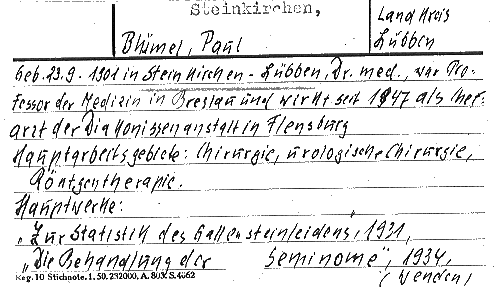 Steinkirchen,
Land Kreis
Lübben
Blümel, Paul
Geb. 23.9.1901 in Steinkirchen-Lübben, Dr. med., war Pro-
fessor der Medizin in Breslau und wirkt seit 1947 als Chef-
arzt der Diakonissenanstalt in Flensburg
Hauptarbeitsgebiete: Chirurgie, urologische Chirurgie,
Röntgentherapie.
Hauptwerke:
"Zur Statistik des Gallensteinleidens", 1931,
"Die Behandlung der Seminome", 1934,
(Wenden)
Keg. 10 Stichnote. 1. 50. 232000, A. 803. S. 4062